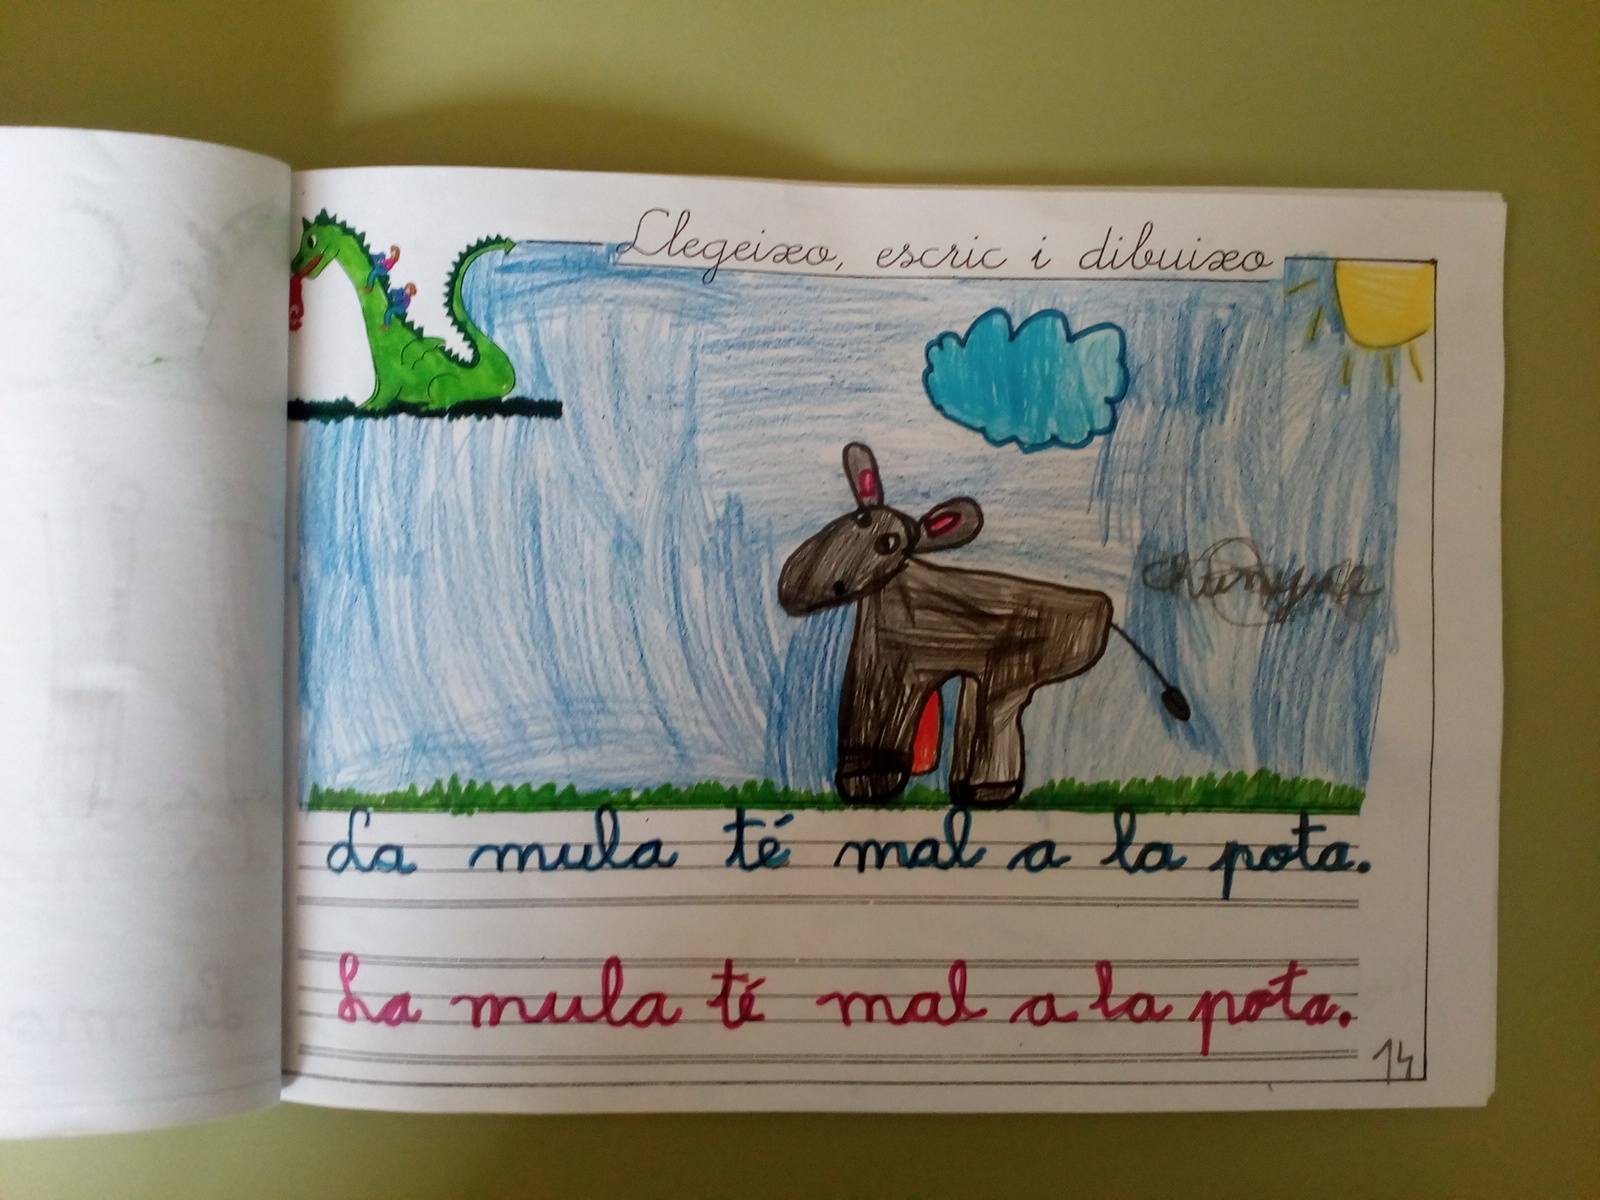 Llegeixo, escric i dibuixo
La mula té mal a la pota.
La mula té mal a la pota.
14